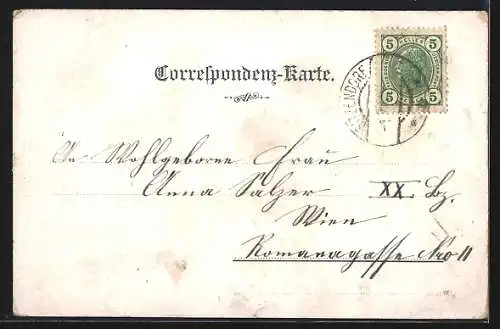 Correspondenz-Karte.
5 5
5 5
An Wohlgeborne Frau
Anna Salzer XX. Bz.
Wien
Romanogasse Nro 11